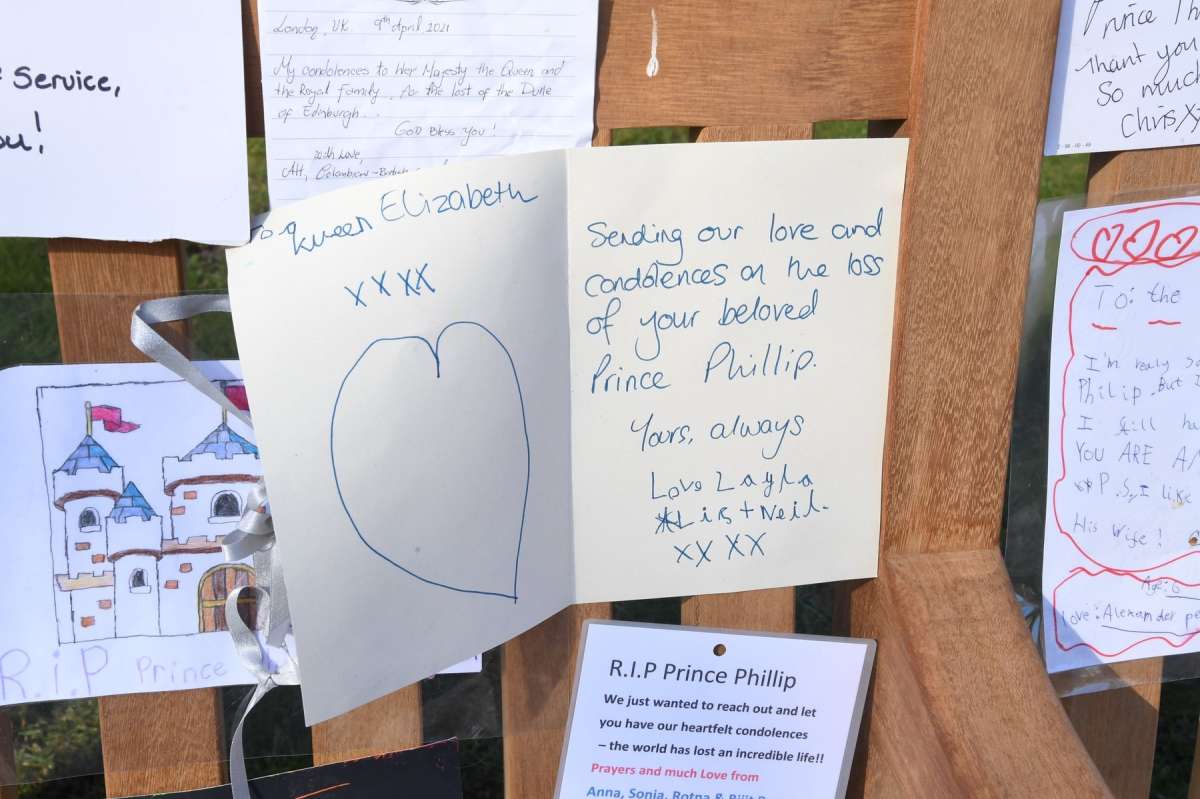 Service,
ou!
London, UK. 9th April, 2021
My condolences to Her Majesty the Queen and
the Royal Family. For the lost of the Duke
of Edinburgh..
God Bless you!
with Love,
To Queen Elizabeth
XXXX
Sending our love and
condolences on the loss
of your beloved
Prince Phillip.
Yours, always
Love Layla
Lis + Neil.
XX XX
R.i.P Prince
R.I.P Prince Phillip
We just wanted to reach out and let
you have our heartfelt condolences
– the world has lost an incredible life!!
Prayers and much Love from
Anna, Sonia,
Thank you
So much
Chris XX
To: the
I'm really
Philip. But I
I still
YOU ARE
P.S, I like
His Wife!
Age: 6
Love: Alexander